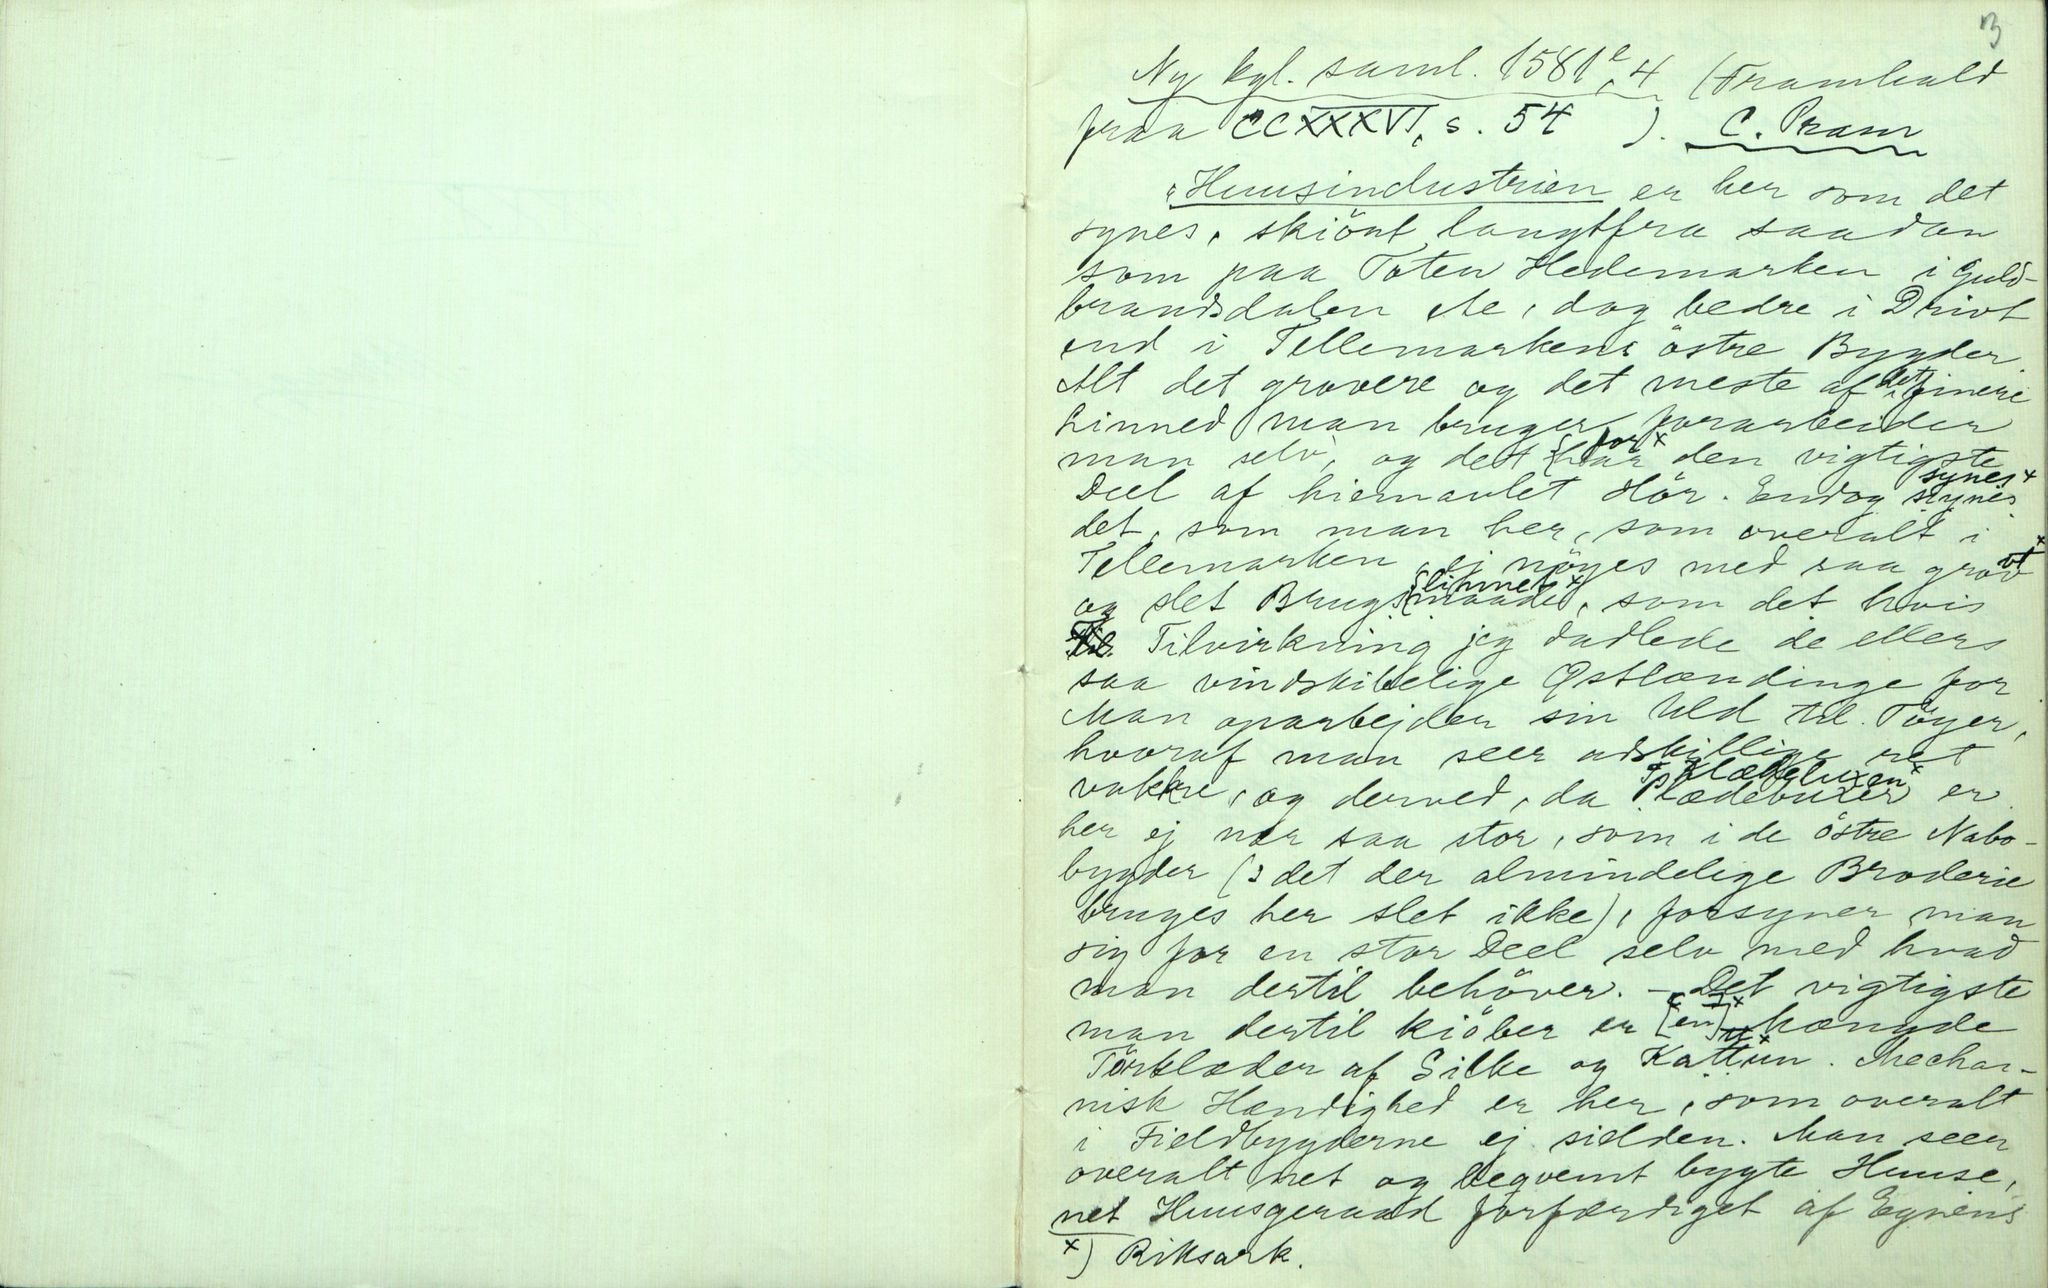 3
Ny kgl. saml. 1581 e, 4 (Framhald
fraa CCXXXVI, s. 54 ). C. Pram
"Huusindustrien er her som det
synes, skiönt langtfra saadan
som paa Toten Hedemarken i Guld-
brandsdalen etc, dog bedre i Drivt
end i Tellemarkens östre Bygder.
Alt det grovere og det meste af det finere
Linned man bruger forarbeider
man selv, og det har for x den vigtigste
synes x
Deel af hiemavlet Hör. Endog synes
det, som man her, som overalt i
Tellemarken, ej nöyes med saa grovt x
linnet x
og slet Brugsmaade, som det hvis
Tilvirkning jeg dadlede de ellers
saa vindskibelige Østlændinge for
Man oparbejder sin Uld til Töyer,
hvoraf man seer adskillige ret
Klædeluxen x
vakkre, og derved, da Plædeluxer er
her ej nær saa stor, som i de östre Nabo-
bygder (: det der almindelige Broderie
bruges her slet ikke), forsyner man
sig for en stor Deel selv med hvad
man dertil behöver. – Det vigtigste
man dertil kiöber er [en] x kængde
Törklæder af Silke og Kattun x. Mecha-
nisk Hændighed er her, som overalt
i Fieldbygderne ej sielden. Man seer
overalt net og beqvemt bygte Huuse,
net Huusgeraad forfærdiget af Egnens
x) Riksark.